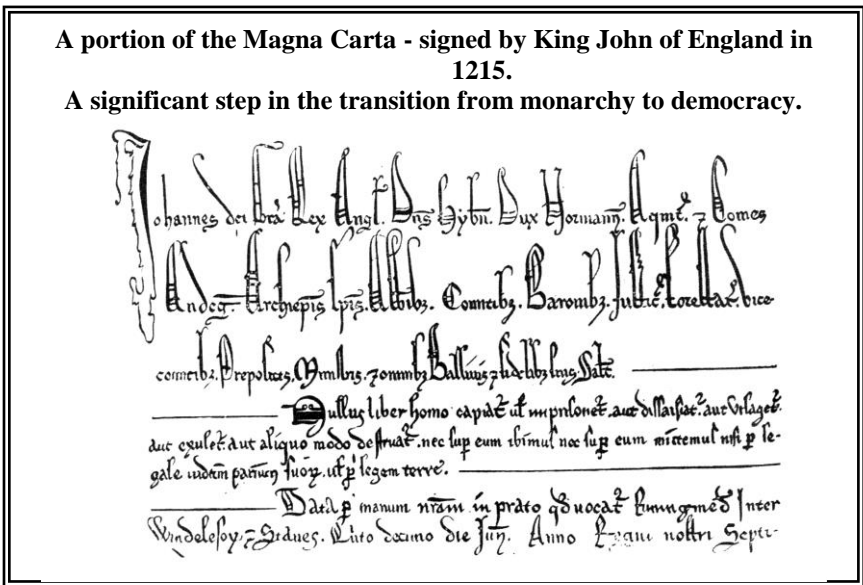 A portion of the Magna Carta - signed by King John of England in
1215.
A significant step in the transition from monarchy to democracy.
Johannes dei Gra Rex Angl. Dns Hybn. Dux Normann. Aqmt. ⁊ Comes
Andeg. Archiepis Epis. Abbibz. Comitibz. Baronibz. Justic. Forestar. vice
comitibz. Prepositis. Ministris. ⁊ omnibz Ballivis ⁊ fidelibz suis Salt.
Nullus liber homo capiat ut imprisonet. aut dissaisiat. aut utlaget.
aut exulet. aut aliquo modo destruat. nec sup eum ibimus nec sup eum mittemus nisi p le-
gale judicm parium suoꝝ. ut p legem terre.
Data p manum nram in prato qd vocat Runingmed Inter
Windelesor. ⁊ Stanes. Quinto decimo die Jun. Anno Regni nostri Septi-